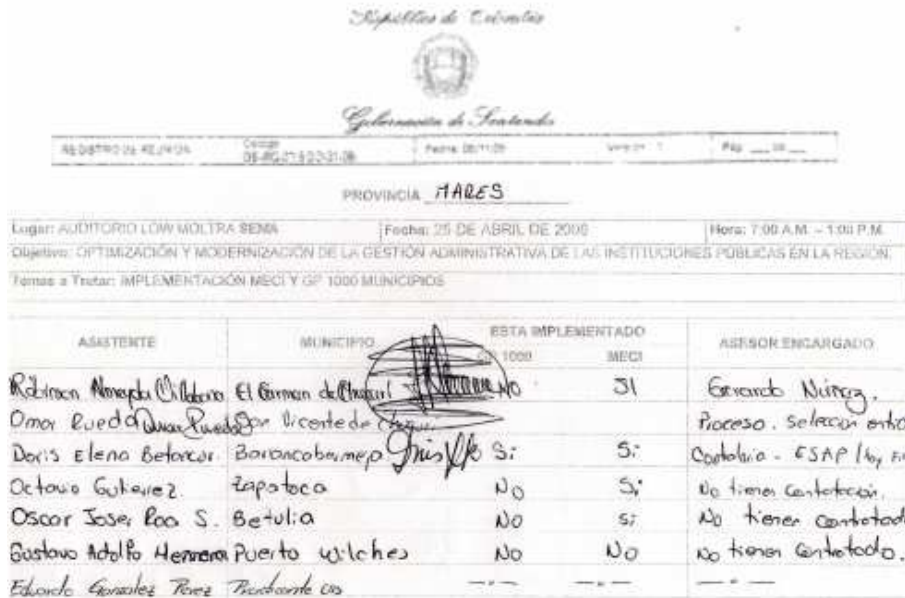 República de Colombia
Gobernación de Santander
REGISTRO DE REUNION Código Fecha: 08/11/05 Versión: 1 Pág.
PROVINCIA MARES
Lugar: AUDITORIO LOW MOLTRA SENA Fecha: 25 DE ABRIL DE Hora: 7:00 A.M. – 1:00 P.M.
Objetivo: OPTIMIZACIÓN Y MODERNIZACIÓN DE LA GESTIÓN ADMINISTRATIVA DE LAS INSTITUCIONES PÚBLICAS EN LA REGIÓN.
Temas a Tratar: IMPLEMENTACIÓN MECI Y GP 1000 MUNICIPIOS
ASISTENTE MUNICIPIO ESTA IMPLEMENTADO ASESOR ENCARGADO
GP 1000 MECI
Robinson El Carmen de NO SI Gerardo Núñez.
Omar Rueda Omar Rueda San Vicente de Proceso. Selección
Doris Elena Betancur. Barancabermeja Si Si Contolria - ESAP
Octavio Gutierrez. Zapatoca No Si No tienen
Oscar Jose, Roa S. Betulia No Si No tienen contratad
Gustavo Adolfo Herrera Puerto Wilches No No No tienen contratado.
Eduardo Gonzalez Perez Practicante UIS — " — — " — — " —